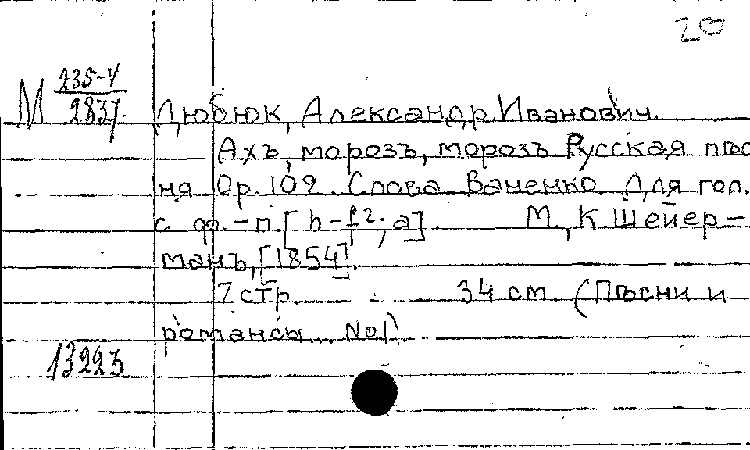 20
М 235-4
2837
Дюбюк, Александр Иванович.
Ахъ, морозъ, морозъ Русская пѣс
ня Op. 102. Слова Ваненко Для гол.
с фп. – п. [h-f2; a] М., К Шейер-
манъ, [1854].
7 стр. 34 см (Пѣсни и
романсы No1)
13223